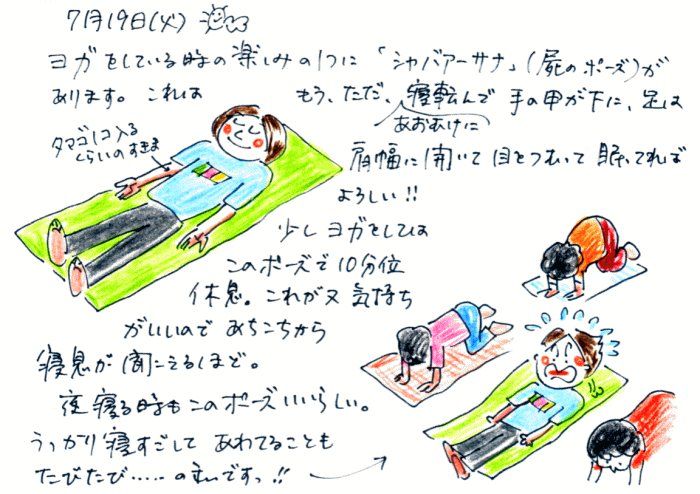 7月19日(火)
ヨガをしている時の楽しみの1つに「シャバアーサナ」(屍のポーズ)が
あります。これは もう、ただ、寝転んで 手の甲が下に、足は
あおむけに
タマゴ1コ入る
くらいのすきま
肩幅に開いて 目をつむって 眠ってれば
よろしい!!
少しヨガをしては
このポーズで10分位
休息。これが又気持ち
がいいので あちこちから
寝息が聞こえるほど。
夜寝る時もこのポーズいいらしい。
うっかり寝すごして あわてることも
たびたび・・・・・
ですっ!!